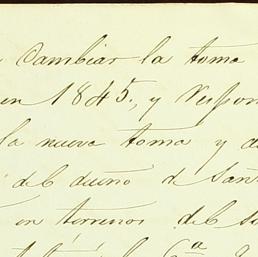 Cambiar la toma
en 1845, y
la nueva toma y
del dueño de San
en terrenos del